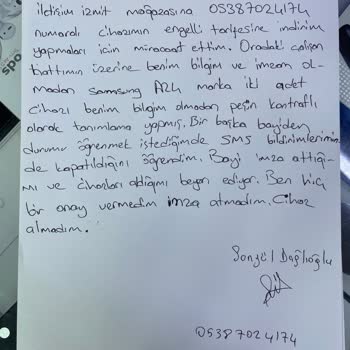 iletişim izmit mağazasına 05387024174
numaralı cihazımın engelli tarifesine indirim
yapmaları için müracaat ettim. Oradaki çalışan
hattımın üzerine benim bilgim ve imzam ol-
madan Samsung A24 marka iki adet
cihazı benim bilgim olmadan peşin kontratlı
olarak tanımlama yapmış. Bir başka bayiden
durumu öğrenmek istediğimde SMS bildirimlerimin
de kapatıldığını öğrendim. Bayi imza attığı-
mı ve cihazları aldığımı beyan ediyor. Ben hiç
bir onay vermedim imza atmadım. Cihaz
almadım.
Songül Dağlıoğlu
05387024174